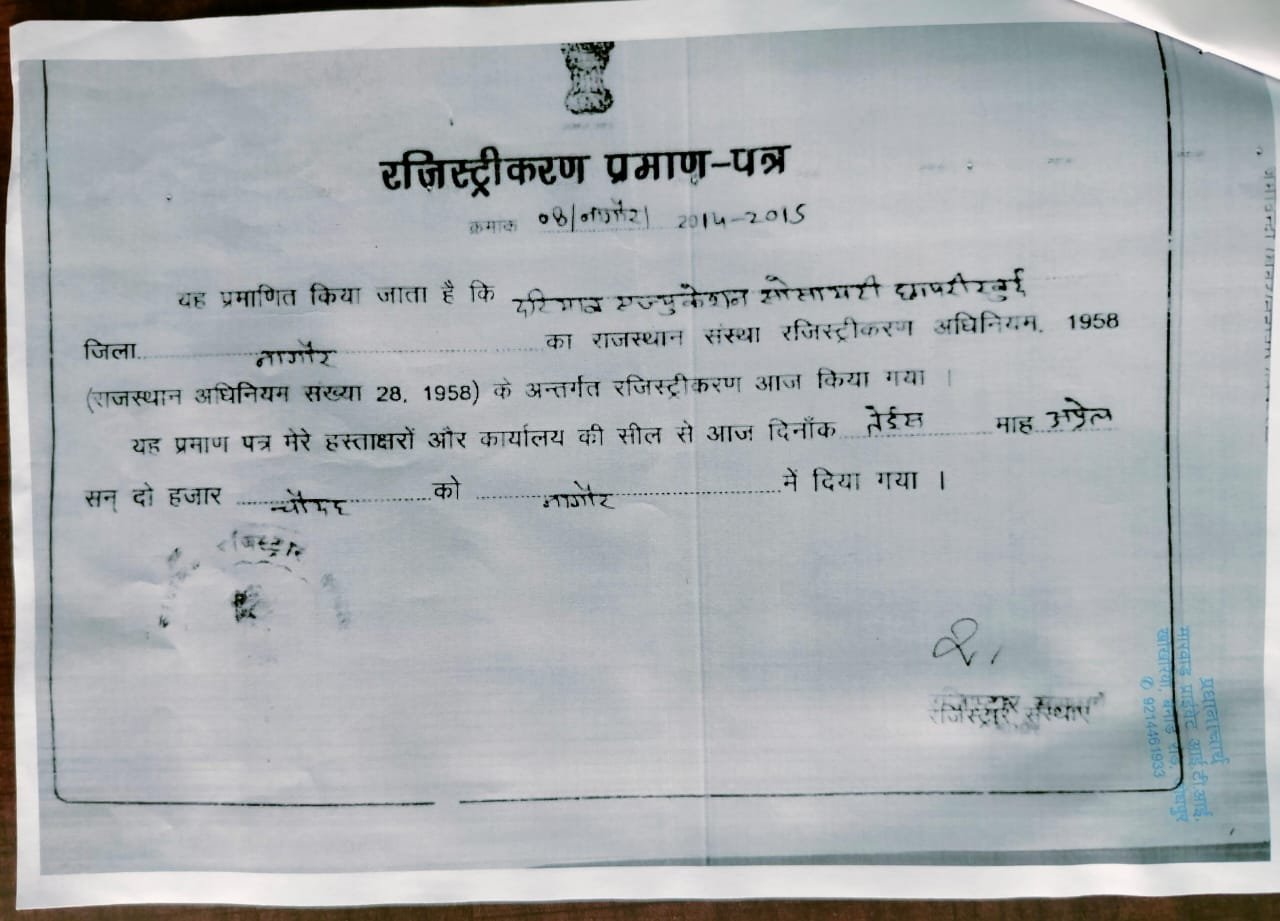 रजिस्ट्रीकरण प्रमाण-पत्र
क्रमांक 08/नागौर/ 2014-2015
यह प्रमाणित किया जाता है कि एज्युकेशन सोसायटी छापरी खुर्द
जिला नागौर का राजस्थान संस्था रजिस्ट्रीकरण अधिनियम, 1958
(राजस्थान अधिनियम संख्या 28, 1958) के अन्तर्गत रजिस्ट्रीकरण आज किया गया ।
यह प्रमाण पत्र मेरे हस्ताक्षरों और कार्यालय की सील से आज दिनाँक तेईस माह अप्रेल
सन् दो हजार चौदह को नागौर में दिया गया ।
रजिस्ट्रार
रजिस्ट्रार संस्थाएं
प्रधानाचार्य
मारवाड़ प्राईवेट आई.टी.आई.
✆ 9214461933